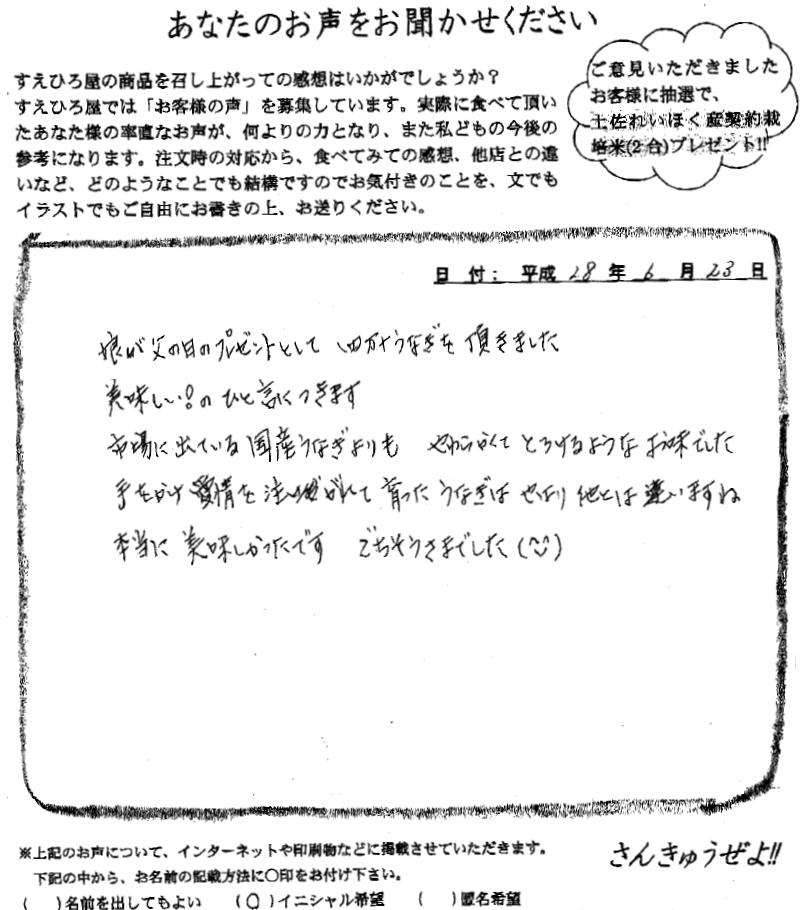 あなたのお声をお聞かせください
すえひろ屋の商品を召し上がっての感想はいかがでしょうか？
すえひろ屋では「お客様の声」を募集しています。実際に食べて頂い
たあなた様の率直なお声が、何よりの力となり、また私どもの今後の
参考になります。注文時の対応から、食べてみての感想、他店との違
いなど、どのようなことでも結構ですのでお気付きのことを、文でも
イラストでもご自由にお書きの上、お送りください。
ご意見いただきました
お客様に抽選で、
土佐れいほく産契約栽
培米(2合)プレゼント!!
日 付： 平成 28 年 6 月 23 日
娘が父の日のプレゼントとして 四万十うなぎを 頂きました
美味しい!のひと言につきます
市場に出ている国産うなぎよりも やわらかくて とろけるような お味でした
手をかけ 愛情を 注がれて 育った うなぎは やはり 他とは 違いますね
本当に 美味しかったです ごちそうさまでした
※上記のお声について、インターネットや印刷物などに掲載させていただきます。
下記の中から、お名前の記載方法に〇印をお付け下さい。
( )名前を出してもよい (〇)イニシャル希望 ( )匿名希望
さんきゅうぜよ!!